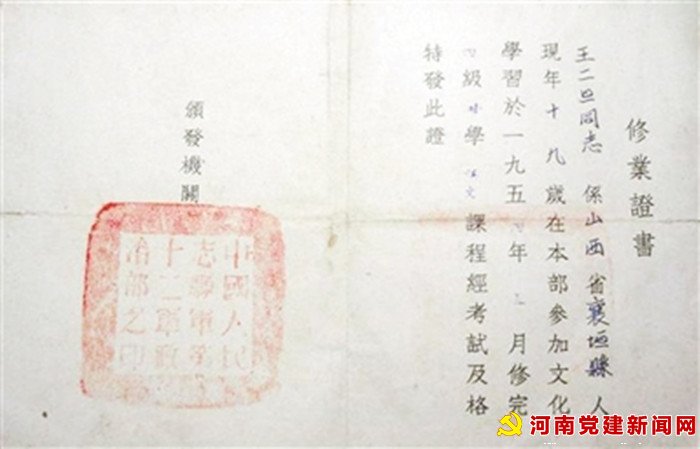 修業證書
王二旦同志係山西省襄垣縣人
現年十九歲在本部參加文化
學習於一九五 年 月修完
級 學 課程經考試及格
特發此證
頒發機關
中國人民
志願軍第
十二軍政
治部之印
河南党建新闻网